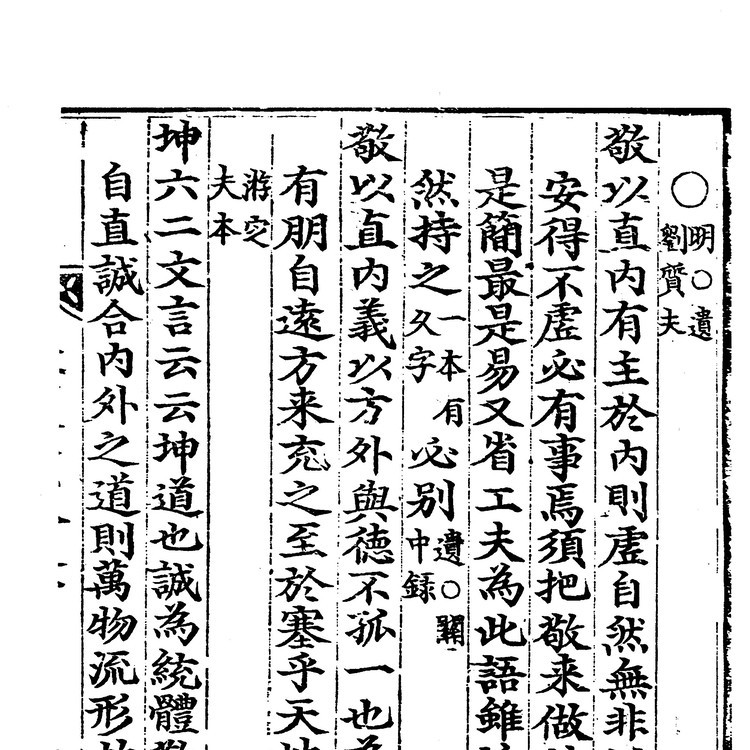 ○明○遺劉質夫
敬以直内有主於内則虛自然無非
安得不虛必有事焉須把敬来做
是簡最是易又省工夫為此語雖
然持之一本有久字必別遺○關中録
敬以直内義以方外與德不孤一也為
有朋自遠方来充之至於塞乎天地
游定夫本
坤六二文言云云坤道也誠為統體
自直誠合内外之道則萬物流形